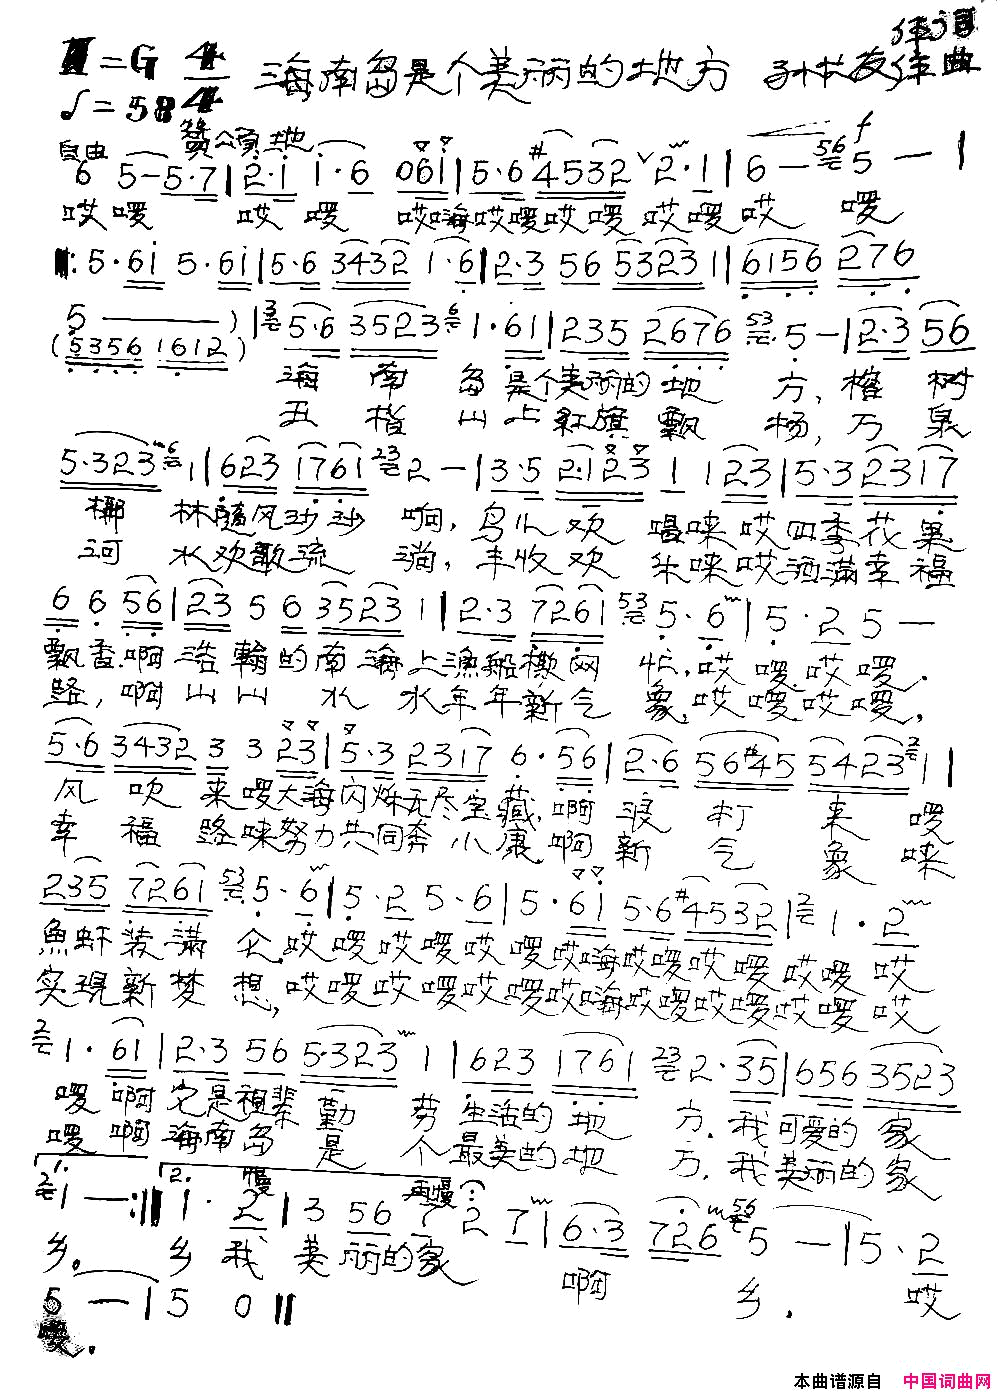 作词
=G 4/4 海南岛是个美丽的地方 孙林友作曲
♩=58
自由 赞颂地
6 5-5·7|2·1 1·6 061|5·6 #4532 2·1|6- 5-|
哎啰 哎啰 哎嗨哎啰哎啰哎啰哎 啰
‖:5·61 5·61|5·6 3432 1·6|2·3 56 5323 1|6156 276
5——)|5·6 3523 1·61|235 2676 5-|2·3 56
(5356 1612)
海南岛是个美丽的地方,榕树
五指山上红旗飘扬,万泉
5·323 1|623 1761 2-|3·5 2·123 1 1 23|5·3 2317
椰林随风沙沙响,鸟儿欢唱唻哎四季花果
河水欢歌流淌,丰收欢乐唻哎洒满幸福
6 6 56|23 5 6 3523 1|2·3 7261 5·6|5·2 5-
飘香,啊浩瀚的南海上渔船撒网忙,哎啰,哎啰.
路,啊山山水水年年新气象,哎啰哎啰,
5·6 3432 3 3 23|5·3 2317 6·56|2·6 56#45 5423 1|
风吹来啰大海闪烁无尽宝藏,啊浪打来啰
幸福路唻努力共同奔小康,啊新气象唻
235 7261 5·6|5·2 5·6|5·61 5·6#4532|1·2
魚虾装满仓,哎啰哎啰哎啰哎嗨哎啰哎啰哎啰哎
实现新梦想,哎啰哎啰哎啰哎嗨哎啰哎啰哎啰哎
1·61|2·3 56 5·323 1|623 1761 2·35|656 3523
啰啊它是祖辈勤劳生活的地方.我可爱的家
啰啊海南岛是个最美的地方.我美丽的家
1. 2. 慢 再慢
1-:‖1·2|3 56 7 2 7|6·3 726 5-|5·2
乡。 乡我美丽的家啊乡.哎
5-|5 0‖
啰.
本曲谱源自 中国词曲网